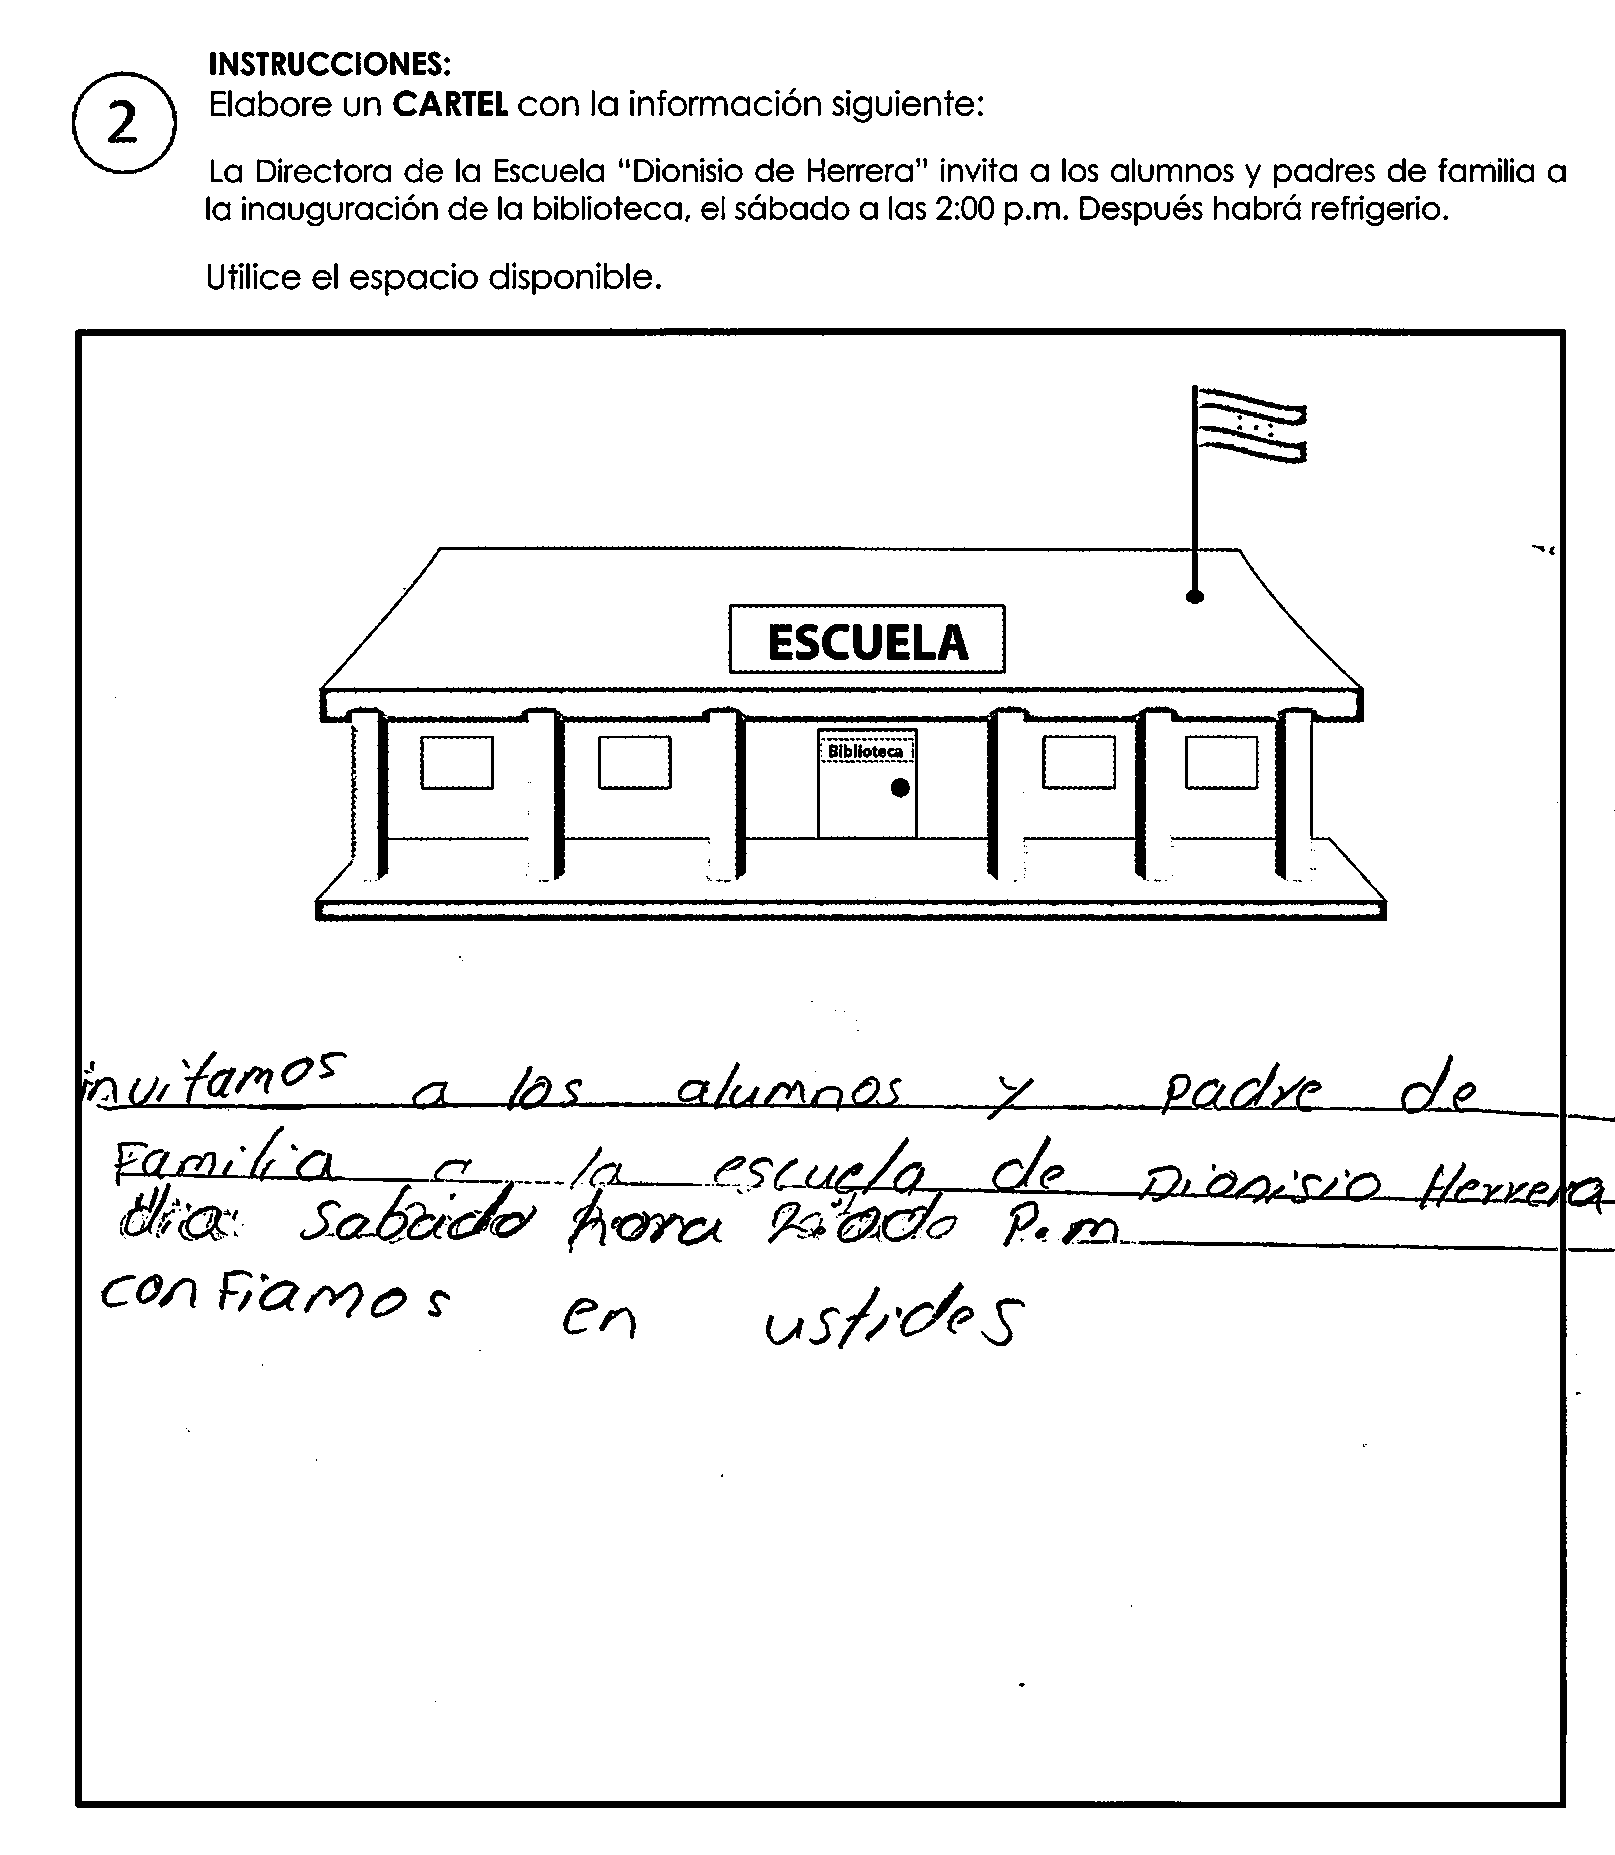 INSTRUCCIONES:
2
Elabore un CARTEL con la información siguiente:
La Directora de la Escuela “Dionisio de Herrera” invita a los alumnos y padres de familia a
la inauguración de la biblioteca, el sábado a las 2:00 p.m. Después habrá refrigerio.
Utilice el espacio disponible.
ESCUELA
Biblioteca
invitamos a los alumnos y padre de
Familia a la escuela de Dionisio Herrera
dia: Sabado hora P.m
confiamos en ustides